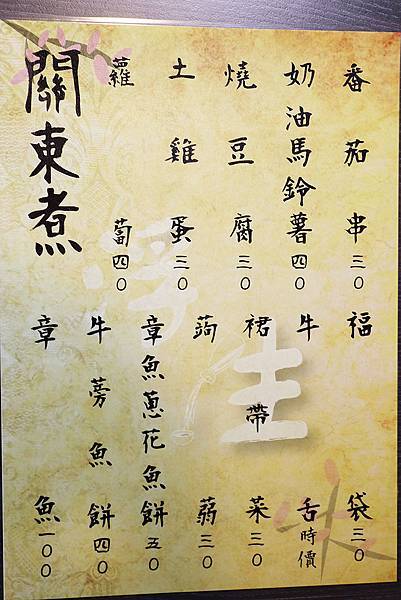 關東煮
番茄串三〇
奶油馬鈴薯四〇
燒豆腐三〇
土雞蛋三〇
蘿蔔四〇
福袋三〇
牛舌時價
裙帶菜三〇
蒟蒻三〇
章魚蔥花魚餅五〇
牛蒡魚餅四〇
章魚一〇〇
浮生